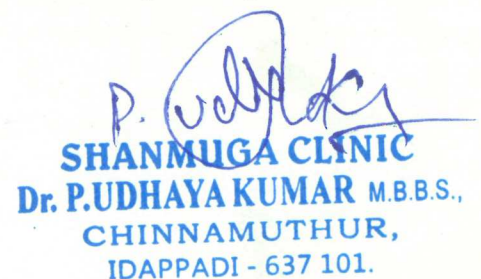 P. Udhaya Kr
SHANMUGA CLINIC
Dr. P.UDHAYA KUMAR M.B.B.S.,
CHINNAMUTHUR,
IDAPPADI - 637 101.